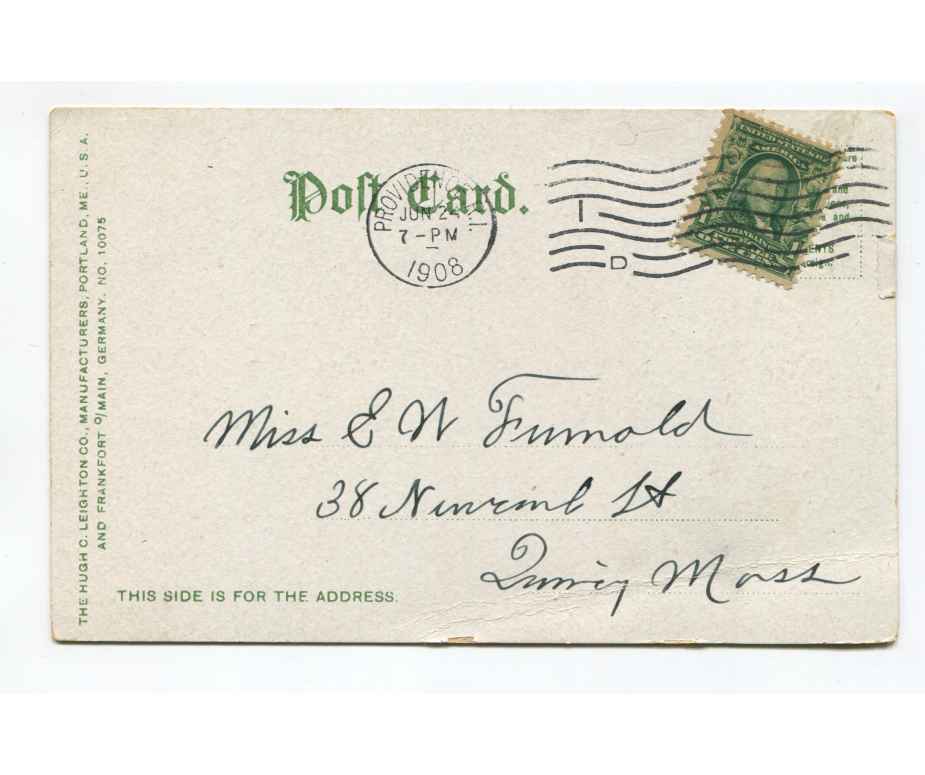 Post Card.
PROVIDENCE, R.I.
JUN 24
7-PM
1908
I
D
UNITED STATES OF
AMERICA
FRANKLIN
THE HUGH C. LEIGHTON CO., MANUFACTURERS, PORTLAND, ME., U.S.A.
AND FRANKFORT O/MAIN, GERMANY. NO. 10075
Miss E W
38 St
Quincy Mass
THIS SIDE IS FOR THE ADDRESS.